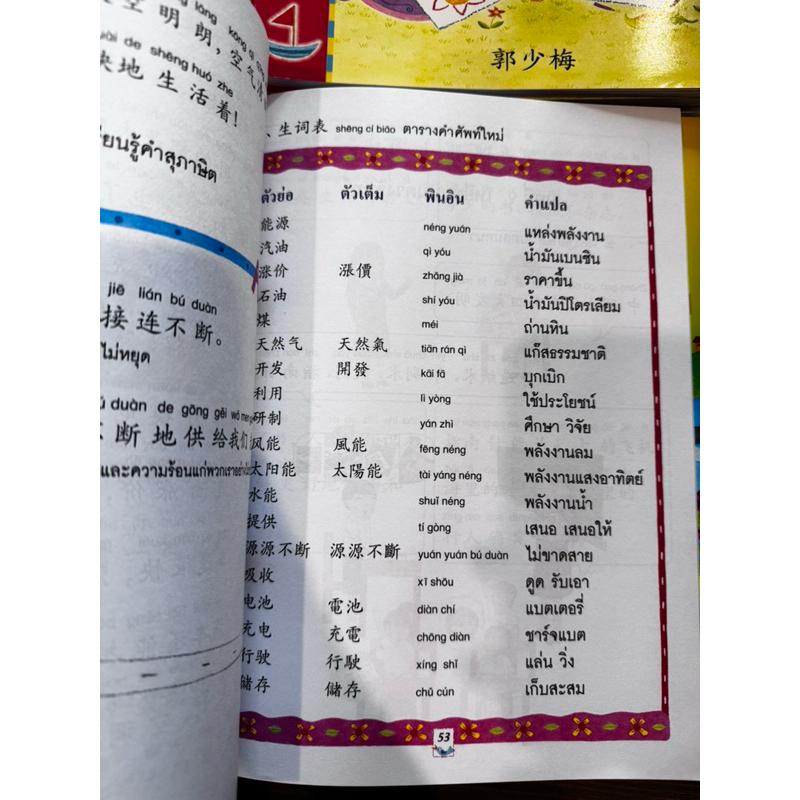 郭少梅
明朗，空气
de shēng huó zhe
地生活着！
ยนรู้คำสุภาษิต
jiē lián bú duàn
接连不断。
ไม่หยุด
duàn de gōng gěi wǒ men
断地供给我们
และความร้อนแก่พวกเราอย่าง
、生词表 shēng cí biǎo ตารางคำศัพท์ใหม่
ตัวย่อ ตัวเต็ม พินอิน คำแปล
能源 néng yuán แหล่งพลังงาน
汽油 qì yóu น้ำมันเบนซิน
涨价 漲價 zhāng jià ราคาขึ้น
石油 shí yóu น้ำมันปิโตรเลียม
煤 méi ถ่านหิน
天然气 天然氣 tiān rán qì แก๊สธรรมชาติ
开发 開發 kāi fā บุกเบิก
利用 lì yòng ใช้ประโยชน์
研制 yán zhì ศึกษา วิจัย
风能 風能 fēng néng พลังงานลม
太阳能 太陽能 tài yáng néng พลังงานแสงอาทิตย์
水能 shuǐ néng พลังงานน้ำ
提供 tí gòng เสนอ เสนอให้
源源不断 源源不斷 yuán yuán bú duàn ไม่ขาดสาย
吸收 xī shōu ดูด รับเอา
电池 電池 diàn chí แบตเตอรี่
充电 充電 chōng diàn ชาร์จแบต
行驶 行駛 xíng shǐ แล่น วิ่ง
儲存 儲存 chǔ cún เก็บสะสม
53